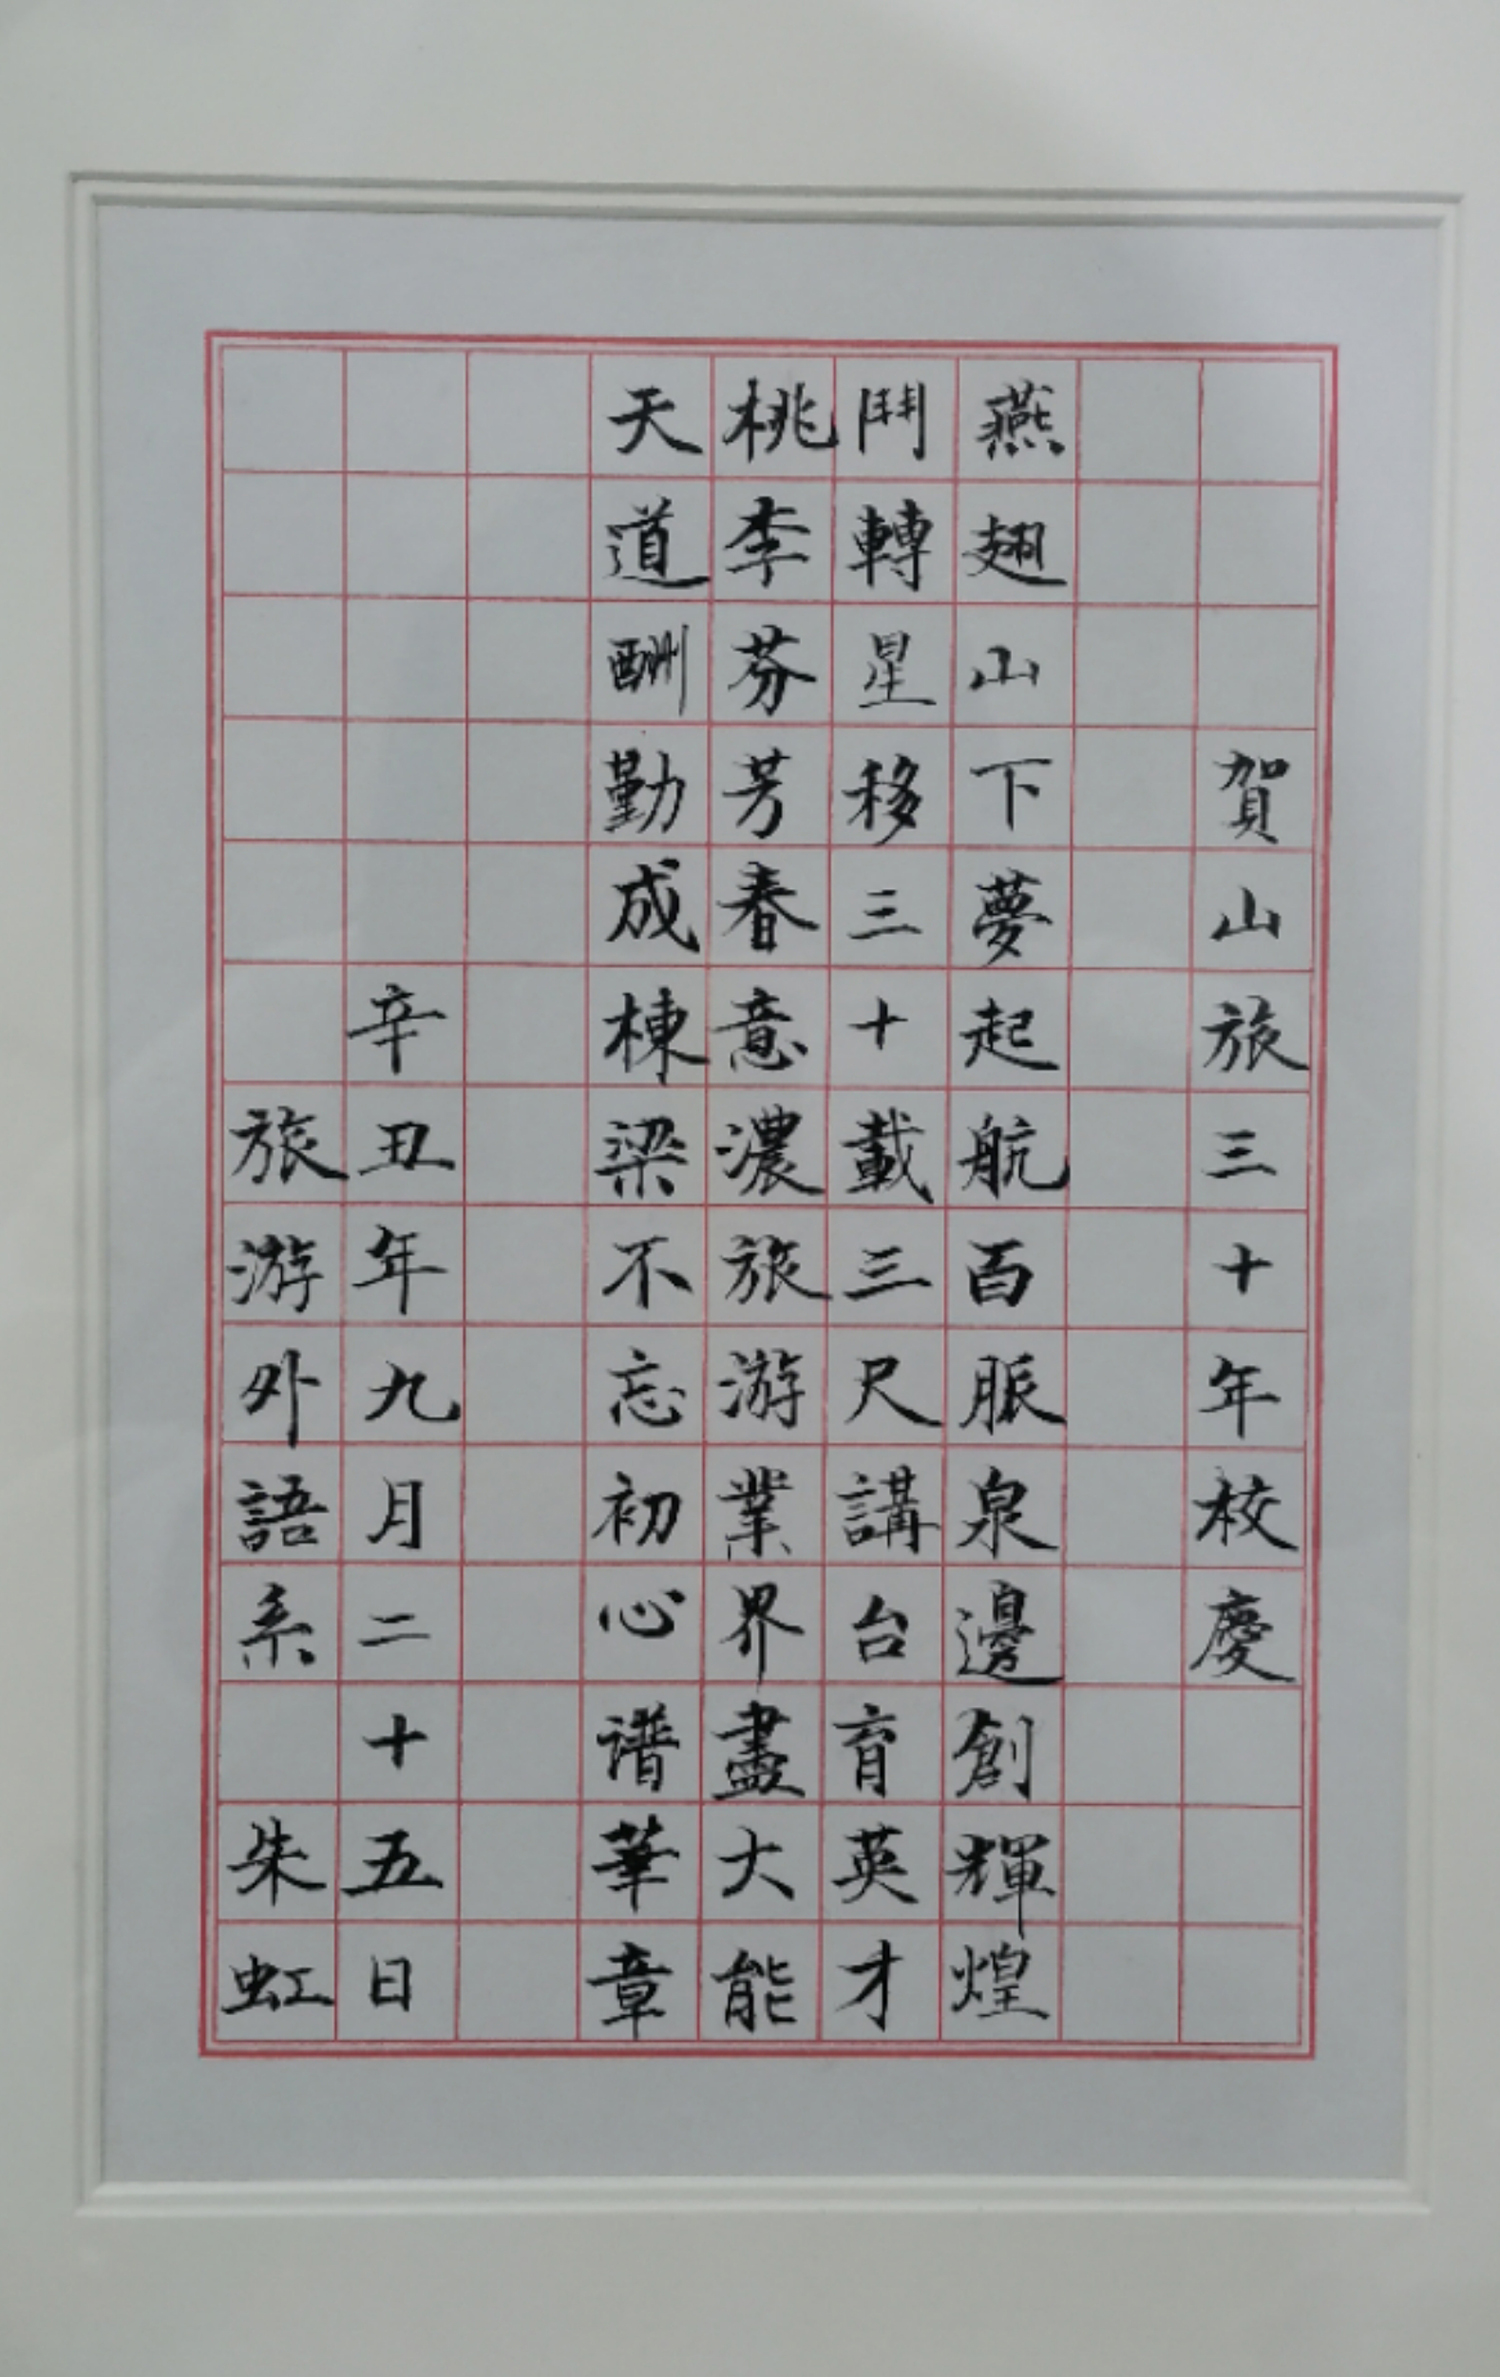 賀山旅三十年校慶
燕翅山下夢起航百脈泉邊創輝煌
鬥轉星移三十載三尺講台育英才
桃李芬芳春意濃旅游業界盡大能
天道酬勤成棟梁不忘初心谱華章
辛丑年九月二十五日
旅游外語系 朱虹